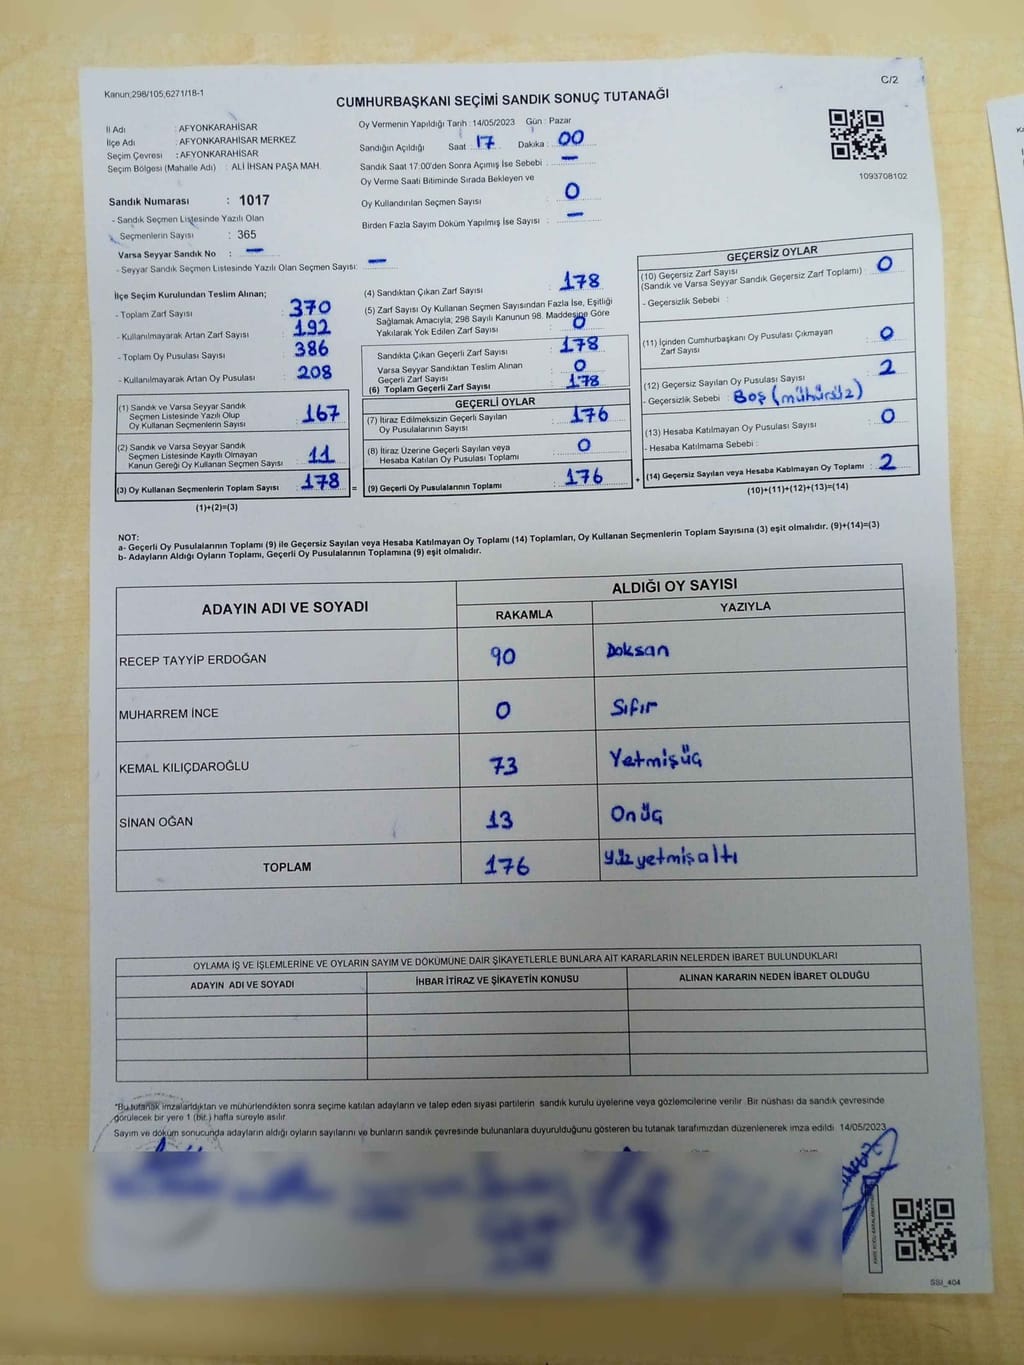 Kanun;298/105;6271/18-1
C/2
CUMHURBAŞKANI SEÇİMİ SANDIK SONUÇ TUTANAĞI
İl Adı : AFYONKARAHİSAR
İlçe Adı : AFYONKARAHİSAR MERKEZ
Seçim Çevresi : AFYONKARAHİSAR
Seçim Bölgesi (Mahalle Adı) : ALİ İHSAN PAŞA MAH.
Sandık Numarası : 1017
- Sandık Seçmen Listesinde Yazılı Olan
Seçmenlerin Sayısı : 365
Varsa Seyyar Sandık No : —
- Seyyar Sandık Seçmen Listesinde Yazılı Olan Seçmen Sayısı: —
Oy Vermenin Yapıldığı Tarih : 14/05/2023 Gün : Pazar
Sandığın Açıldığı Saat : 17 Dakika : 00
Sandık Saat 17:00'den Sonra Açımış İse Sebebi : —
Oy Verme Saati Bitiminde Sırada Bekleyen ve
Oy Kullandırılan Seçmen Sayısı : 0
Birden Fazla Sayım Döküm Yapılmış İse Sayısı : —
1093708102
İlçe Seçim Kurulundan Teslim Alınan;
- Toplam Zarf Sayısı : 370
- Kullanılmayarak Artan Zarf Sayısı : 192
- Toplam Oy Pusulası Sayısı : 386
- Kullanılmayarak Artan Oy Pusulası : 208
(1) Sandık ve Varsa Seyyar Sandık
Seçmen Listesinde Yazılı Olup
Oy Kullanan Seçmenlerin Sayısı : 167
(2) Sandık ve Varsa Seyyar Sandık
Seçmen Listesinde Kayıtlı Olmayan
Kanun Gereği Oy Kullanan Seçmen Sayısı : 11
(3) Oy Kullanan Seçmenlerin Toplam Sayısı : 178 =
(1)+(2)=(3)
(4) Sandıktan Çıkan Zarf Sayısı : 178
(5) Zarf Sayısı Oy Kullanan Seçmen Sayısından Fazla İse, Eşitliği
Sağlamak Amacıyla, 298 Sayılı Kanunun 98. Maddesine Göre
Yakılarak Yok Edilen Zarf Sayısı : 0
Sandıkta Çıkan Geçerli Zarf Sayısı : 178
Varsa Seyyar Sandıktan Teslim Alınan
Geçerli Zarf Sayısı : 0
(6) Toplam Geçerli Zarf Sayısı : 178
GEÇERLİ OYLAR
(7) İtiraz Edilmeksizin Geçerli Sayılan
Oy Pusulalarının Sayısı : 176
(8) İtiraz Üzerine Geçerli Sayılan veya
Hesaba Katılan Oy Pusulası Toplamı : 0
(9) Geçerli Oy Pusulalarının Toplamı : 176 +
GEÇERSİZ OYLAR
(10) Geçersiz Zarf Sayısı
(Sandık ve Varsa Seyyar Sandık Geçersiz Zarf Toplamı) : 0
- Geçersizlik Sebebi :
(11) İçinden Cumhurbaşkanı Oy Pusulası Çıkmayan
Zarf Sayısı : 0
(12) Geçersiz Sayılan Oy Pusulası Sayısı : 2
- Geçersizlik Sebebi : Boş (mühürsüz)
(13) Hesaba Katılmayan Oy Pusulası Sayısı : 0
- Hesaba Katılmama Sebebi :
(14) Geçersiz Sayılan veya Hesaba Katılmayan Oy Toplamı : 2
(10)+(11)+(12)+(13)=(14)
NOT:
a- Geçerli Oy Pusulalarının Toplamı (9) ile Geçersiz Sayılan veya Hesaba Katılmayan Oy Toplamı (14) Toplamları, Oy Kullanan Seçmenlerin Toplam Sayısına (3) eşit olmalıdır. (9)+(14)=(3)
b- Adayların Aldığı Oyların Toplamı, Geçerli Oy Pusulalarının Toplamına (9) eşit olmalıdır.
ADAYIN ADI VE SOYADI
ALDIĞI OY SAYISI
RAKAMLA YAZIYLA
RECEP TAYYİP ERDOĞAN 90 Doksan
MUHARREM İNCE 0 Sıfır
KEMAL KILIÇDAROĞLU 73 Yetmişüç
SİNAN OĞAN 13 Onüç
TOPLAM 176 yüzyetmişaltı
OYLAMA İŞ VE İŞLEMLERİNE VE OYLARIN SAYIM VE DÖKÜMÜNE DAİR ŞİKAYETLERLE BUNLARA AİT KARARLARIN NELERDEN İBARET BULUNDUKLARI
ADAYIN ADI VE SOYADI İHBAR İTİRAZ VE ŞİKAYETİN KONUSU ALINAN KARARIN NEDEN İBARET OLDUĞU
*Bu tutanak imzalandıktan ve mühürlendikten sonra seçime katılan adayların ve talep eden siyasi partilerin sandık kurulu üyelerine veya gözlemcilerine verilir. Bir nüshası da sandık çevresinde
görülecek bir yere 1 (bir) hafta süreyle asılır.
Sayım ve döküm sonucunda adayların aldığı oyların sayılarını ve bunların sandık çevresinde bulunanlara duyurulduğunu gösteren bu tutanak tarafımızdan düzenlenerek imza edildi. 14/05/2023
SSI_404